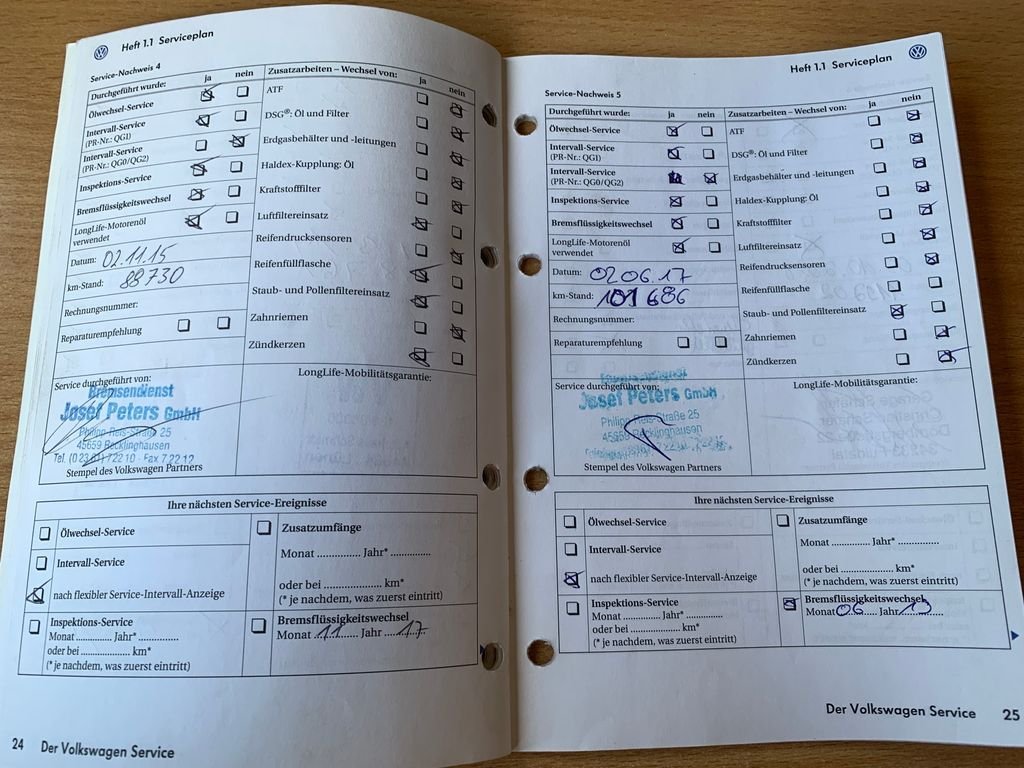 Heft 1.1 Serviceplan
Service-Nachweis 4
Durchgeführt wurde: ja nein
Ölwechsel-Service
Intervall-Service
(PR-Nr.: QG1)
Intervall-Service
(PR-Nr.: QG0/QG2)
Inspektions-Service
Bremsflüssigkeitswechsel
LongLife-Motorenöl
verwendet
Datum: 02.11.15
km-Stand: 88730
Rechnungsnummer:
Reparaturempfehlung
Zusatzarbeiten – Wechsel von: ja nein
ATF
DSG®: Öl und Filter
Erdgasbehälter und -leitungen
Haldex-Kupplung: Öl
Kraftstofffilter
Luftfiltereinsatz
Reifendrucksensoren
Reifenfüllflasche
Staub- und Pollenfiltereinsatz
Zahnriemen
Zündkerzen
Service durchgeführt von:
Bremsendienst
Josef Peters GmbH
Philipp-Reis-Straße 25
45659 Recklinghausen
Tel. (0 23 61) 7 22 10 - Fax 7 22 12
Stempel des Volkswagen Partners
LongLife-Mobilitätsgarantie:
Ihre nächsten Service-Ereignisse
Ölwechsel-Service
Intervall-Service
nach flexibler Service-Intervall-Anzeige
Zusatzumfänge
Monat ............... Jahr* ..............
oder bei ..................... km*
(* je nachdem, was zuerst eintritt)
Inspektions-Service
Monat ............ Jahr* ..............
oder bei ..................... km*
(* je nachdem, was zuerst eintritt)
Bremsflüssigkeitswechsel
Monat 11 Jahr 17
24 Der Volkswagen Service
Heft 1.1 Serviceplan
Service-Nachweis 5
Durchgeführt wurde: ja nein
Ölwechsel-Service
Intervall-Service
(PR-Nr.: QG1)
Intervall-Service
(PR-Nr.: QG0/QG2)
Inspektions-Service
Bremsflüssigkeitswechsel
LongLife-Motorenöl
verwendet
Datum: 02.06.17
km-Stand: 101 686
Rechnungsnummer:
Reparaturempfehlung
Zusatzarbeiten – Wechsel von: ja nein
ATF
DSG®: Öl und Filter
Erdgasbehälter und -leitungen
Haldex-Kupplung: Öl
Kraftstofffilter
Luftfiltereinsatz
Reifendrucksensoren
Reifenfüllflasche
Staub- und Pollenfiltereinsatz
Zahnriemen
Zündkerzen
Service durchgeführt von:
Josef Peters GmbH
Philipp-Reis-Straße 25
45659 Recklinghausen
Stempel des Volkswagen Partners
LongLife-Mobilitätsgarantie:
Ihre nächsten Service-Ereignisse
Ölwechsel-Service
Intervall-Service
nach flexibler Service-Intervall-Anzeige
Zusatzumfänge
Monat ............... Jahr* ..............
oder bei ..................... km*
(* je nachdem, was zuerst eintritt)
Inspektions-Service
Monat ............ Jahr* ..............
oder bei ..................... km*
(* je nachdem, was zuerst eintritt)
Bremsflüssigkeitswechsel
Monat 06 Jahr 19
Der Volkswagen Service 25